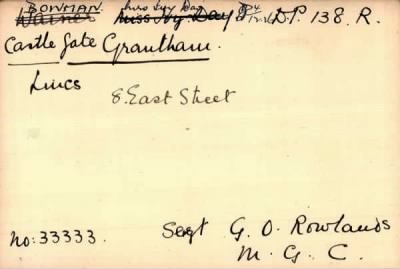 BOWMAN. Mrs Ivy Day
Miss Ivy Day D.P. 138. R.
Castle Gate Grantham.
Lincs
8. East Street
No: 33333. Sergt G. O. Rowlands
M. G. C.